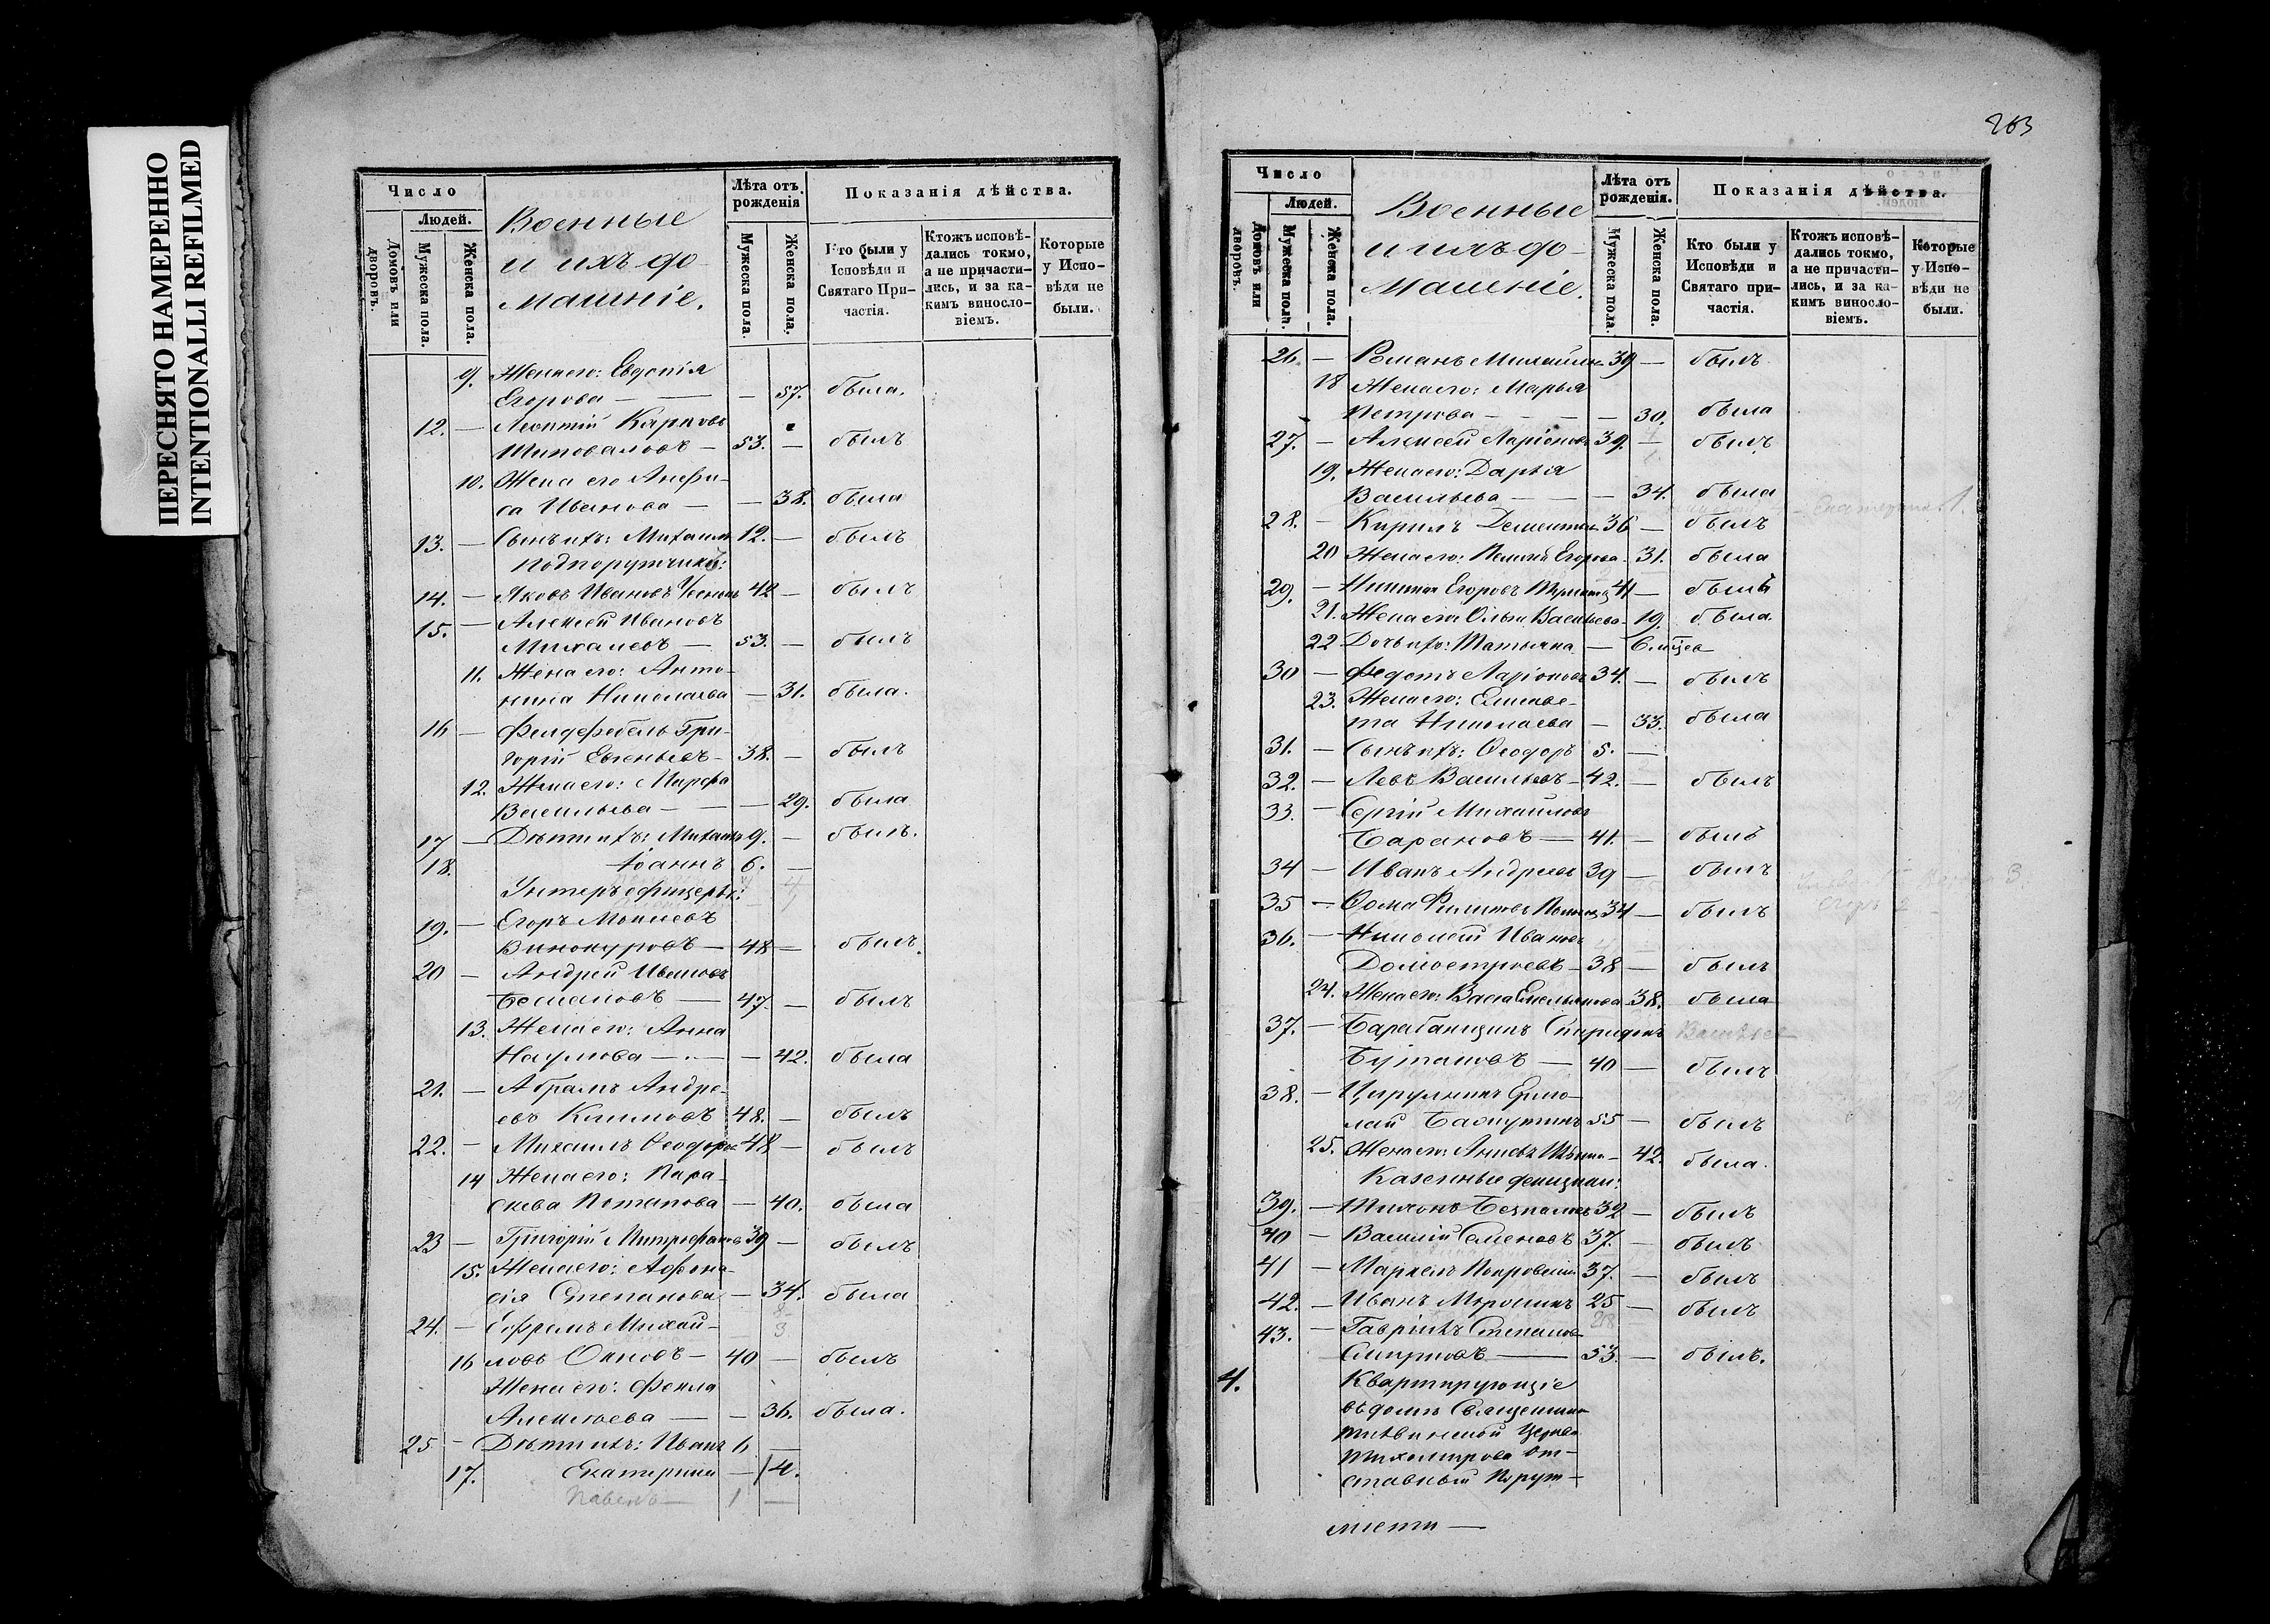 ПЕРЕСНЯТО НАМЕРЕННО
INTENTIONALLI REFILMED
Число
Людей.
Домовъ или дворовъ.
Мужеска пола.
Женска пола.
Военные
и ихъ до-
машніе.
Лѣта отъ рожденія
Мужеска пола.
Женска пола.
Показанія дѣйства.
Кто были у Исповѣди и Святаго Причастія.
Ктожъ исповѣ-
дались токмо,
а не причасти-
лись, и за ка-
кимъ винословіемъ.
Которые у Испо-
вѣди не были.
9. Жена его: Евдокія
Егорова — — 57. была.
12. — Леонтій Карповъ
Шаповаловъ — 53. — былъ
10. Жена его Анфи-
са Иванова — — 38. была
13. — Сынъ ихъ: Михаилъ 12. — былъ
Подпоручики:
14. — Яковъ Ивановъ 42 — былъ
15. — Алексѣй Ивановъ
Михалевъ — 53. — былъ
11. Жена его: Анто-
нина Николаева — 31. была.
16 — Фелдфебель Гри-
горій Евгеньевъ — 38. — былъ
12. Жена его: Марфа
Васильева — — 29. была
17 — Дѣти ихъ: Михаилъ 9. — былъ.
18. Іоаннъ 6. —
Унтеръ офицеры:
19. — Егоръ Мокиевъ
Винокуровъ — 48 — былъ.
20 — Андрей Ивановъ
47. — былъ
13. Жена его: Анна
Наумова — — 42. была
21. — Абрамъ Андре-
евъ Климовъ 48. — былъ
22. — Михаилъ Ѳеодоровъ 48 — былъ
14 Жена его: Пара-
скева Потапова — 40. была
23 — Григорій Митрофановъ 39 — былъ
15. Жена его: Аѳона-
сія Степанова — 34. была
24. — Ефремъ Михай-
16 ловъ 40 — былъ
Жена его: Фекла
Алексѣева — — 36. была.
25 — Дѣти ихъ: Иванъ 6 —
17. Екатерина — 4.
Павелъ — 1 —
263
Число
Людей.
Домовъ или дворовъ.
Мужеска пола.
Женска пола.
Военные
и ихъ до-
машніе.
Лѣта отъ рожденія.
Мужеска пола.
Женска пола.
Показанія дѣйства.
Кто были у Исповѣди и Святаго при-
частія.
Ктожъ исповѣ-
дались токмо,
а не причасти-
лись, и за ка-
кимъ винословіемъ.
Которые у Испо-
вѣди не были.
26. — Романъ Михайловъ 39 — былъ
18 Жена его: Марья
Петрова — — 30. была
27. — Алексѣй Ларіоновъ 39. — былъ
19. Жена его: Дарья
Васильева — — 34. была
28. — Кирилъ Дементьевъ 36 — былъ
Екатерина 1.
20 Жена его: Егорова 31. была
29. — Никита Егоровъ 41 — былъ
21. Жена его Ольга Васильева 19. была.
22 Дочь ихъ: Татьяна —
30 — Федотъ Ларіоновъ 34. — былъ
23. Жена его: Елисаве-
та Николаева — 33. была
31. — Сынъ ихъ: Ѳеодоръ 5. —
32. — Левъ Васильевъ — 42. — былъ
33. — Сергій Михаиловъ
Барановъ — 41. — былъ
34 — Иванъ Андреевъ 39 — былъ
3.
35 — Ѳома Филиповъ 34 — былъ
36. — Николай Ивановъ
Домостроевъ — 38 — былъ
24. Жена его: Васса Емельянова — 38. была
37. — Барабанщикъ Спиридонъ Васильев
40 — былъ
38. — Цирульникъ Ермо-
лай 55 — былъ
25. Жена его: — 42. была.
Казенные денщики:
39. — Тихонъ 32 — былъ
40 — Василій Семеновъ 37. — былъ
41 — Маркелъ Покровскій 37. — былъ
42. — Иванъ Мирошинъ 25 — былъ
43. — Гавріилъ Степановъ
Смирновъ — 53. — былъ.
4. Квартирующіе
въ домѣ Священника
Тихвинской Церкви
Тихомирова От-
ставный Порут-